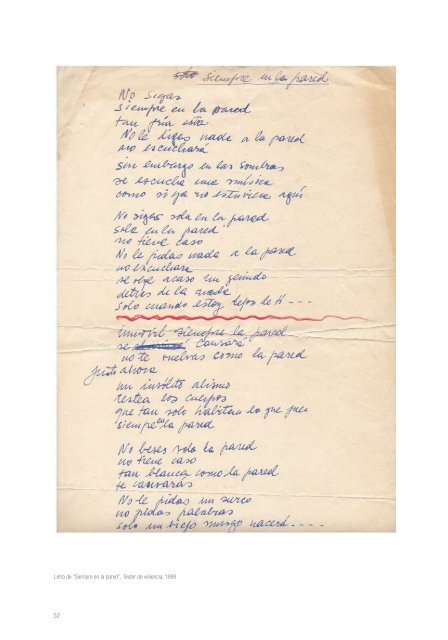 Siempre en la pared
No sigas
siempre en la pared
tan fría esta
No le digas nada a la pared
no escuchará
sin embargo en las sombras
se escucha una música
como si ya no estuviera aquí
No sigas sola en la pared
sola en la pared
no tiene caso
No le pidas nada a la pared
no escuchara
se oye acaso un gemido
detras de la nada
solo cuando estoy lejos de ti ---
inmovil siempre la pared
se cansará
no te vuelvas como la pared
justo ahora
un insólito abismo
testea los cuerpos
que tan solo habitan lo que
siempre en la pared
No beses solo la pared
no tiene caso
tan blanca como la pared
te cansarás
No le pidas un surco
no pidas palabras
solo un viejo musgo nacerá ----
Letra de "Siempre en la pared", Tester de violencia, 1988
52